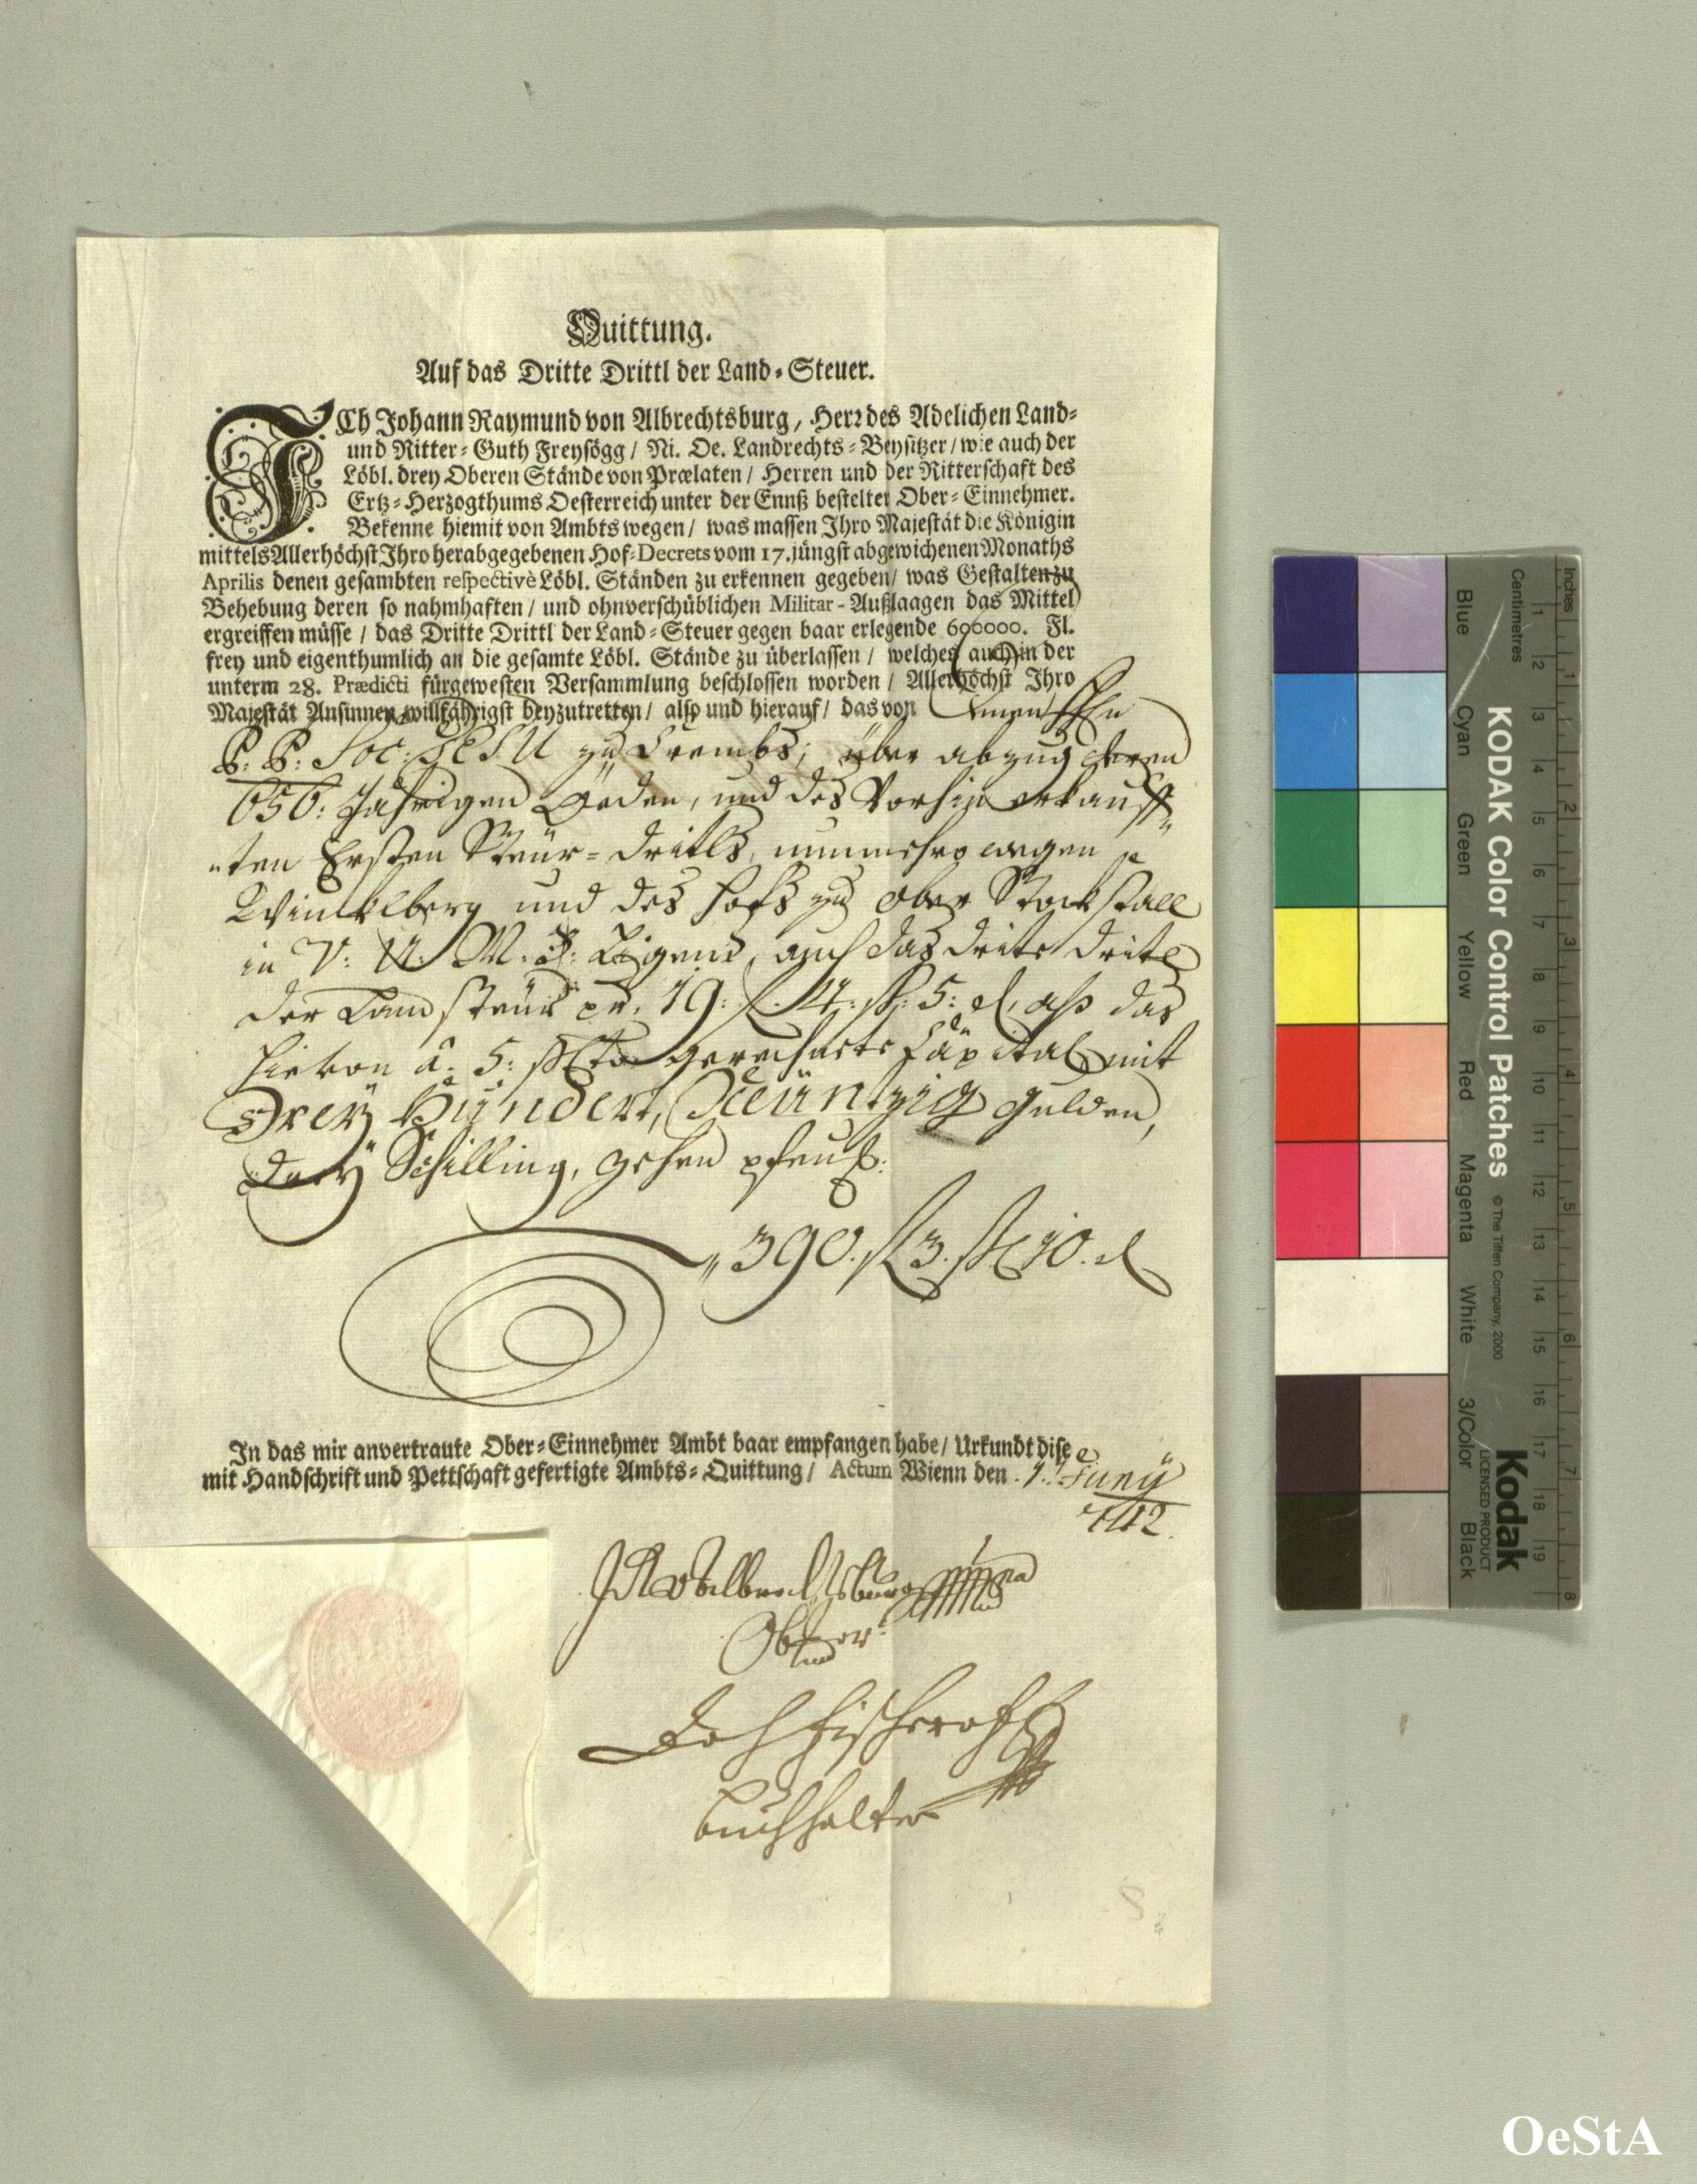 Quittung.
Auf das Dritte Drittl der Land-Steuer.
ICh Johann Raymund von Albrechtsburg / Herr des Adelichen Land-
und Ritter-Guth Freysögg / Ni. Oe. Landrechts-Beysitzer / wie auch der
Löbl. drey Oberen Stände von Prælaten / Herren und der Ritterschafft des
Ertz-Herzogthums Oesterreich unter der Ennß bestelter Ober-Einnehmer.
Bekenne hiemit von Ambts wegen / was massen Ihro Majestät die Königin
mittels Allerhöchst Ihro herabgegebenen Hof-Decrets vom 17. jüngst abgewichenen Monaths
Aprilis denen gesambten respectivè Löbl. Ständen zu erkennen gegeben / was Gestalten zu
Behebung deren so nahmhaften / und ohnverschüblichen Militar-Außlaagen das Mittel
ergreiffen müsse / das Dritte Drittl der Land-Steuer gegen baar erlegende 600000. Fl.
frey und eigenthumlich an die gesamte Löbl. Stände zu überlassen / welches auch in der
unterm 28. Prædicti fürgewesten Versammlung beschlossen worden / Allerhöchst Ihro
Majestät Ansinnen willfährigst beyzutretten / also und hierauf / das von
P: P: Soc: JESU zu Crembs; über abzug deren
656: Jährigen Öeden, und des Vorhin erkauff-
-ten Ersten Steür-dritls, nunmehro wegen
Winklberg und des Hofs zu Ober Stockstall
in V: U: M: B: Ligend, auch das drite dritl
der Landsteür pr. 19: f. 4: ß: 5: d, alß das
hievon à 5: pCto gerechnete Capital mit
Drey Hundert, Neüntzig Gulden,
drey Schilling, zehen pfen:
390. f 3. ß 10. d
In das mir anvertraute Ober-Einnehmer Ambt baar empfangen habe / Urkundt dise
mit Handschrift und Pettschaft gefertigte Ambts-Quittung / Actum Wienn den 1. Juny
1742.
JRvAlbrechtsburg
Buchhalter
Inches
Centimetres
1 2 3 4 5 6 7 8 9 10 11 12 13 14 15 16 17 18 19
1 2 3 4 5 6 7 8
KODAK Color Control Patches
© The Tiffen Company, 2000
Kodak
LICENSED PRODUCT
Blue
Cyan
Green
Yellow
Red
Magenta
White
3/Color
Black
OeStA